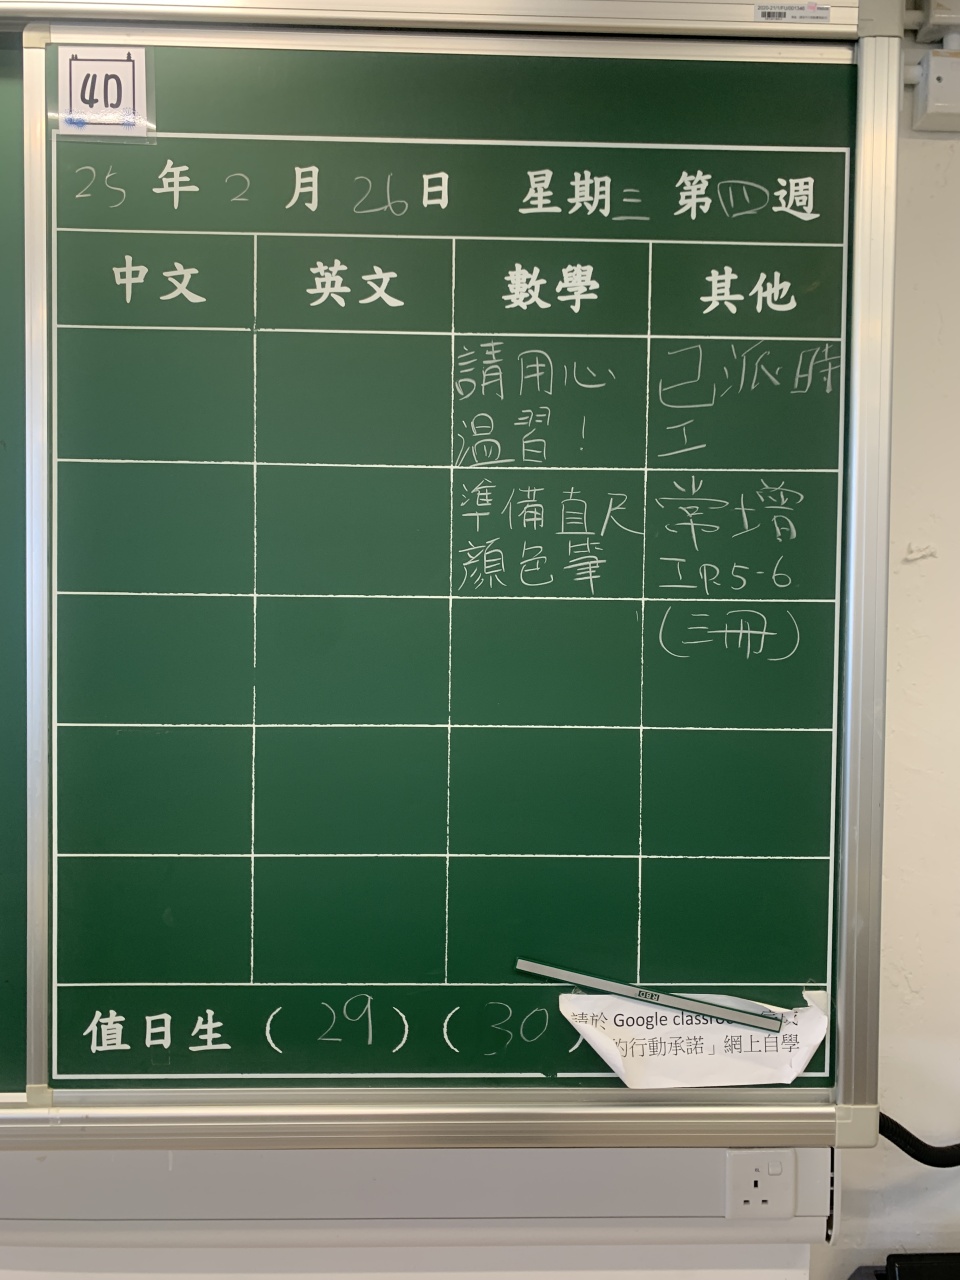 4D
25年2月26日 星期三 第四週
中文 英文 數學 其他
請用心
溫習!
已派時
工
準備直尺
顏色筆
常增
工P.5-6
(三冊)
值日生(29)(30)
請於 Google classroom
的行動承諾」網上自學